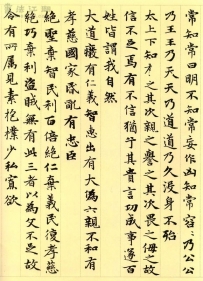 常知常曰明不知常妄作凶知常容〻乃公公
乃王王乃天天乃道道乃久没身不殆
太上下知有之其次親之譽之其次畏之侮之故
信不足焉有不信猶乎其貴言功成事遂百
姓皆謂我自然
大道癈有仁義智惠出有大偽六親不和有
孝慈國家昏亂有忠臣
絶聖棄智民利百倍絶仁棄義民復孝慈
絶巧棄利盜賊無有此三者以為文不足故
令有所属見素抱樸少私寡欲